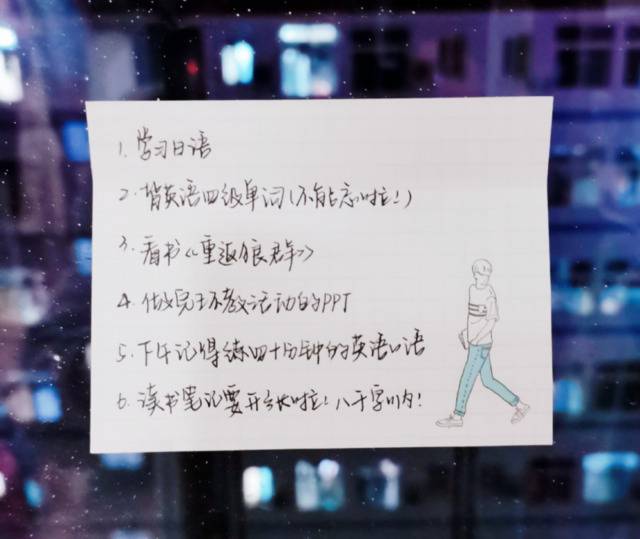 1. 学习日语
2. 背英语四级单词(不能忘啦!)
3. 看书《重返狼群》
4. 做完环教活动的PPT
5. 下午记得练四十分钟的英语口语
6. 读书笔记要开始啦!八千字以内!